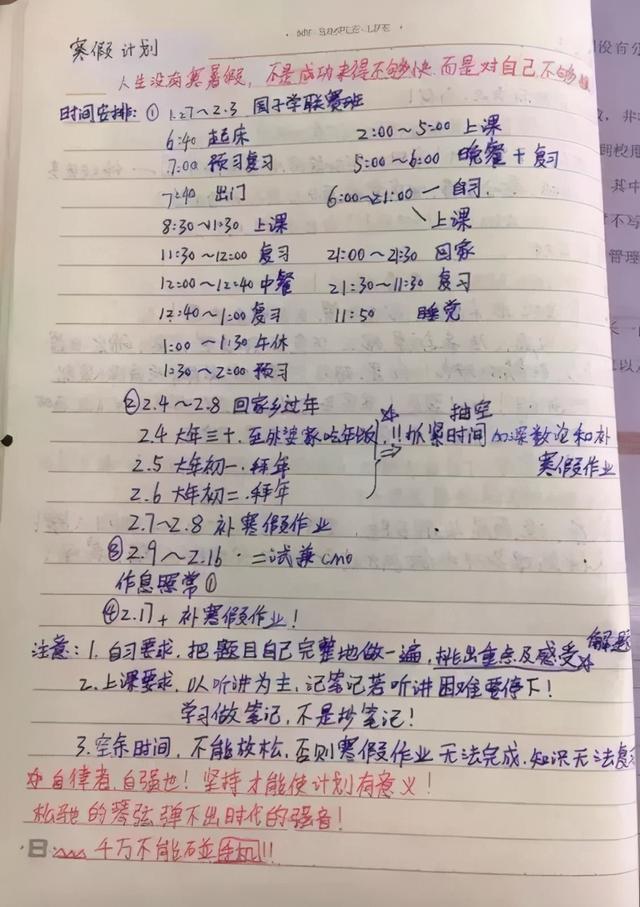 SIMPLE LIFE
寒假计划
人生没有寒暑假，不是成功来得不够快，而是对自己不够
时间安排：① 1.27～2.3 国子学联赛班
6:40 起床 2:00～5:00 上课
7:00 预习复习 5:00～6:00 晚餐+复习
7:40 出门 6:00～21:00 自习
8:30～11:30 上课 上课
11:30～12:00 复习 21:00～21:30 回家
12:00～12:40 中餐 21:30～11:30 复习
12:40～1:00 复习 11:50 睡觉
1:00～1:30 午休
1:30～2:00 预习
② 2.4～2.8 回家乡过年 抽空
2.4 大年三十，至外婆家吃年饭 !!抓紧时间加深数论和补
2.5 大年初一，拜年 寒假作业
2.6 大年初二，拜年
2.7～2.8 补寒假作业
③ 2.9～2.16 二试兼CMO
作息照常①
④ 2.17+ 补寒假作业！
注意：1. 自习要求，把题目自己完整地做一遍，挑出重点及感受 解题
2. 上课要求，以听讲为主，记笔记若听讲困难要停下！
学习做笔记，不是抄笔记！
3. 空余时间，不能放松，否则寒假作业无法完成，知识无法复习
自律者，自强也！坚持才能使计划有意义！
松驰的琴弦弹不出时代的强音！
日 千万不能碰手机!!